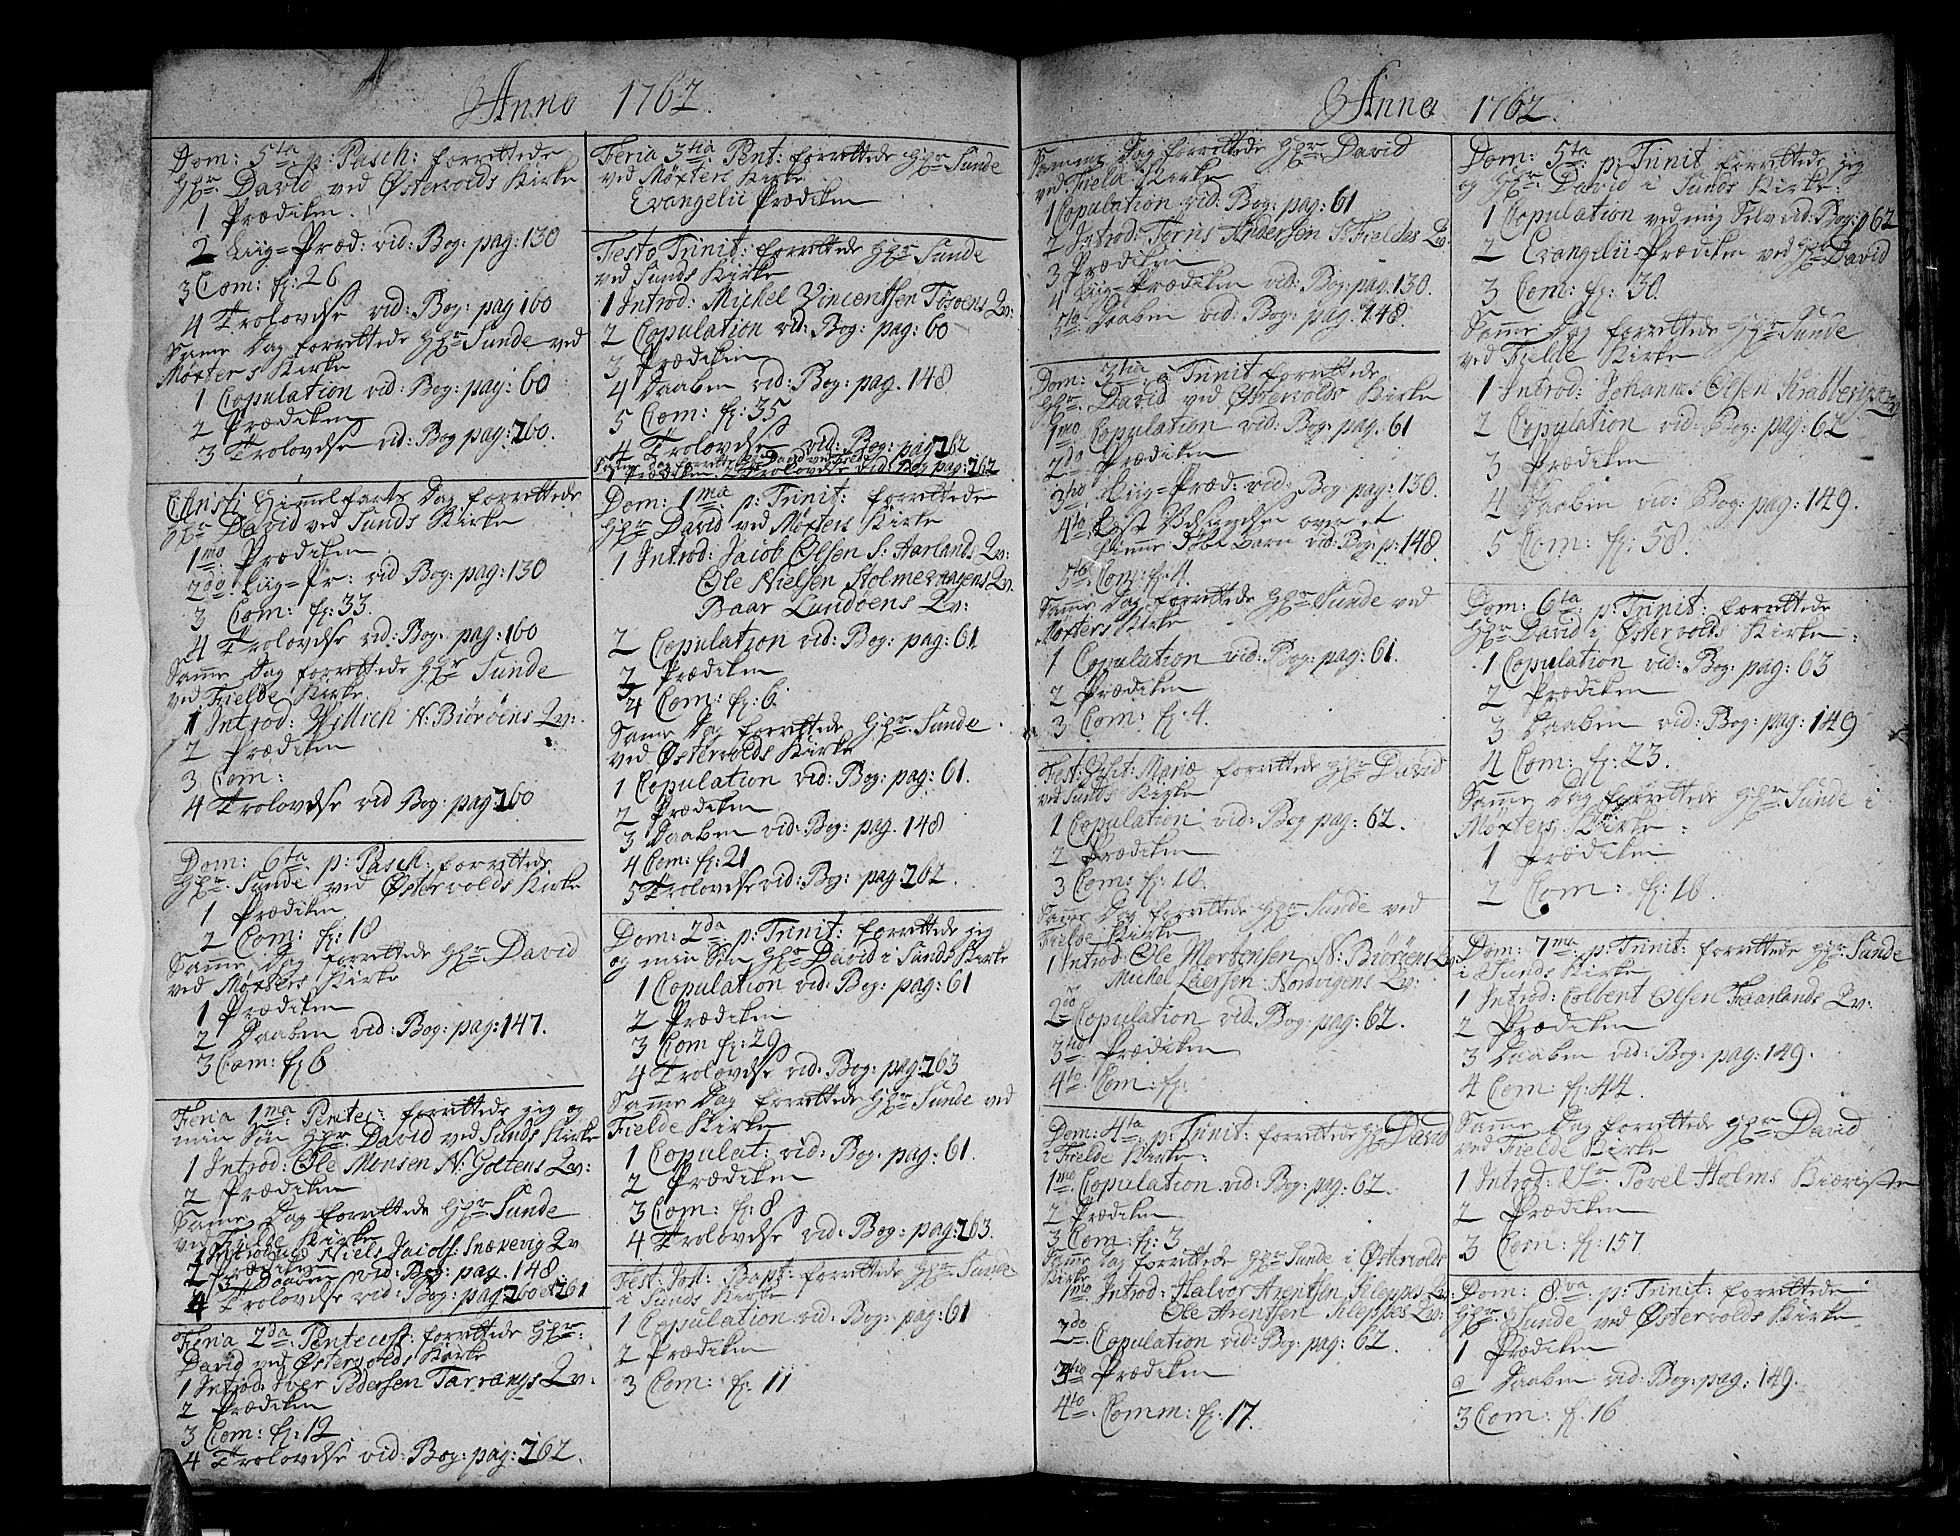 Anno 1762.
Dom: 5ta p: Pasch: forrettede
Hr. David ved Østervolds Kirke
1 Prædiken.
2 Liig=Præd: vid: Bog: pag: 130
3 Com: f: 26
4 Trolovelse vid: Bog: pag 160
Samme Dag forrettede Hr. Sunde ved
Møxters Kirke
1 Copulation vid: Bog: pag: 60
2 Prædiken
3 Trolovelse vid: Bog pag: 260.
Christi Himmelfarts Dag forrettede
Hr. David ved Sunds Kirke
1mo Prædiken
2do Liig=Pr: vid Bog: pag: 130
3 Com: f: 33.
4 Trolovelse vid: Bog: pag: 160
Samme Dag forrettede Hr. Sunde
ved Fielde Kirke
1 Introd: N: Biørøens Qv:
2 Prædiken
3 Com:
4 Trolovelse vid Bog: pag 260
Dom: 6ta p: Pasch: forrettede
Hr. Sunde ved Østervolds Kirke
1 Prædiken
2 Com: f: 18
Samme Dag forrettede Hr. David
ved Møxters Kirke
1 Prædiken
2 Daaben vid: Bog: pag: 147.
3 Com: f: 6
Feria 1ma Pentec: forrettede jeg og
min Søn Hr. David ved Sunds Kirke
1 Introd: Ole Monsen N: Goltens Qv:
2 Prædiken
Samme Dag forrettede Hr. Sunde
ved Fielde Kirke
1 Introd: Niels Jacobs: Snekevig Qv
2 Prædiken
3 Daaben vid: Bog: pag. 148.
4 Trolovelse vid: Bog: pag 260 et 261
Feria 2da Pentecost: forrettede Hr.
David ved Østervolds Kirke
1 Introd: Iver Pedersen Tarrangs Qv:
2 Prædiken
3 Com: f: 12
4 Trolovelse vid: Bog: pag: 262.
Feria 3tia Pent: forrettede Hr. Sunde
ved Møxters Kirke
Evangelii Prædiken
Festo Trinit: forrettede Hr. Sunde
ved Sunds Kirke
1 Introd: Mickel Vincentsen Toføens Qv:
2 Copulation vid: Bog: pag: 60
3 Prædiken
4 Daaben vid: Bog: pag. 148
5 Com: f: 35
4 Trolovelse vid: Bog: pag 262
Samme Dag forrettede Hr. David ved
1 Prædiken 2 Trolovelse vid: Bog pag: 262
Dom: 1ma p: Trinit: forrettede
Hr. David ved Møxters Kirke
1 Introd: Jacob Olsen S: Harlands Qv:
Ole Nielsen Stolmevaagens Qv.
Baar Lundøens Qv:
2 Copulation vid: Bog: pag: 61
3 Prædiken
4 Com: f: 6.
Samme Dag forrettede Hr. Sunde
ved Østervolds Kirke
1 Copulation vid: Bog: pag: 61.
2 Prædiken
3 Daaben vid: Bog: pag. 148
4 Com: f: 21
5 Trolovelse vid: Bog: pag: 262.
Dom: 2da p: Trinit: forrettede jeg
og min Søn Hr. David i Sunds Kirke
1 Copulation vid: Bog: pag: 61
2 Prædiken
3 Com f: 29
4 Trolovelse vid: Bog: pag: 263
Samme Dag forrettede Hr. Sunde ved
Fielde Kirke
1 Copulat: vid: Bog: pag: 61.
2 Prædiken
3 Com: f: 8
4 Trolovelse vid: Bog: pag: 263.
Fest: Joh: Bapt: forrettede Hr. Sunde
i Sunds Kirke
1 Copulation vid: Bog: pag: 61
2 Prædiken
3 Com: f: 11
Anno 1762.
Samme Dag forrettede Hr. David
ved Fielde Kirke
1 Copulation vid: Bog: pag: 61
2 Introd: Andersøn S: Fieldes Qv.
3 Prædiken
4 Liig=Prædiken vid: Bog: pag. 130.
5to Daaben vid: Bog: pag: 148.
Dom: 3tia p: Trinit forrettede
Hr. David ved Østervolds Kirke
1mo Copulation vid: Bog: pag. 61
2do Prædiken
3tio Liig=Præd: vid: Bog: pag: 130.
4to over et
hiemme døbt Barn vid: Bog: p: 148
5to Com: f: 4.
Samme Dag forrettede Hr. Sunde ved
Møxters Kirke
1 Copulation vid: Bog: pag: 61.
2 Prædiken
3 Com: f: 4.
Fest: Visit: Mariæ forrettede Hr. David
ved Sunds Kirke
1 Copulation vid: Bog pag: 62.
2 Prædiken
3 Com: f: 10.
Samme Dag forrettede Hr. Sunde ved
Fielde Kirke
1 Introd: Ole Mortensen N: Biørøens Qv:
Mickel Laersen Nordvigens Qv:
2do Copulation vid: Bog: pag: 62.
3tio Prædiken
4to Com: f:
Dom: 4ta p: Trinit: forrettede Hr. David
i Fielde Kirke.
1mo Copulation vid: Bog: pag: 62.
2 Prædiken
3 Com: f: 3
Samme Dag forrettede Hr. Sunde i Østervolds
Kirke
1mo Introd: Halvor Arentsen Kleppes Qv
Ole Arentsen Kleppes Qv:
2da Copulation vid: Bog: pag: 62.
3tio Prædiken
4to Comm: f: 17.
Dom: 5ta p: Trinit forrettede jeg
og Hr. David i Sunds Kirke:
1 Copulation ved mig Selv vid: Bog: p 62
2 Evangelii Prædiken ved Hr. David
3 Com: f: 30.
Samme Dag forrettede Hr. Sunde
ved Fielde Kirke
1 Introd: Johannes Olsen Qv
2 Copulation vid: Bog: pag: 62
3 Prædiken
4 Daaben vid: Bog: pag: 149.
5 Com: f: 58.
Dom: 6ta p: Trinit: forrettede
Hr. David i Østervolds Kirke:
1 Copulation vid: Bog: pag: 63
2 Prædiken
3 Daaben vid: Bog: pag: 149
4 Com: f: 23.
Samme Dag forrettede Hr. Sunde i
Møxters Kirke:
1 Prædiken
2 Com: f: 18.
Dom: 7ma p: Trinit: forrettede Hr. Sunde
i Sunds Kirke
1 Introd: Colbent Olsen Faarlands Qv:
2 Prædiken
3 Daaben vid: Bog: pag: 149.
4 Com: f: 44.
Samme Dag forrettede Hr. David
ved Fielde Kirke
1 Introd: Sr. Povel Holms Kiæriste
2 Prædiken
3 Com: f: 157
Dom: 8va p: Trinit: forrettede
Hr. Sunde ved Østervolds Kirke
1 Prædiken
2 Daaben vid: Bog: pag: 149.
3 Com: f: 16